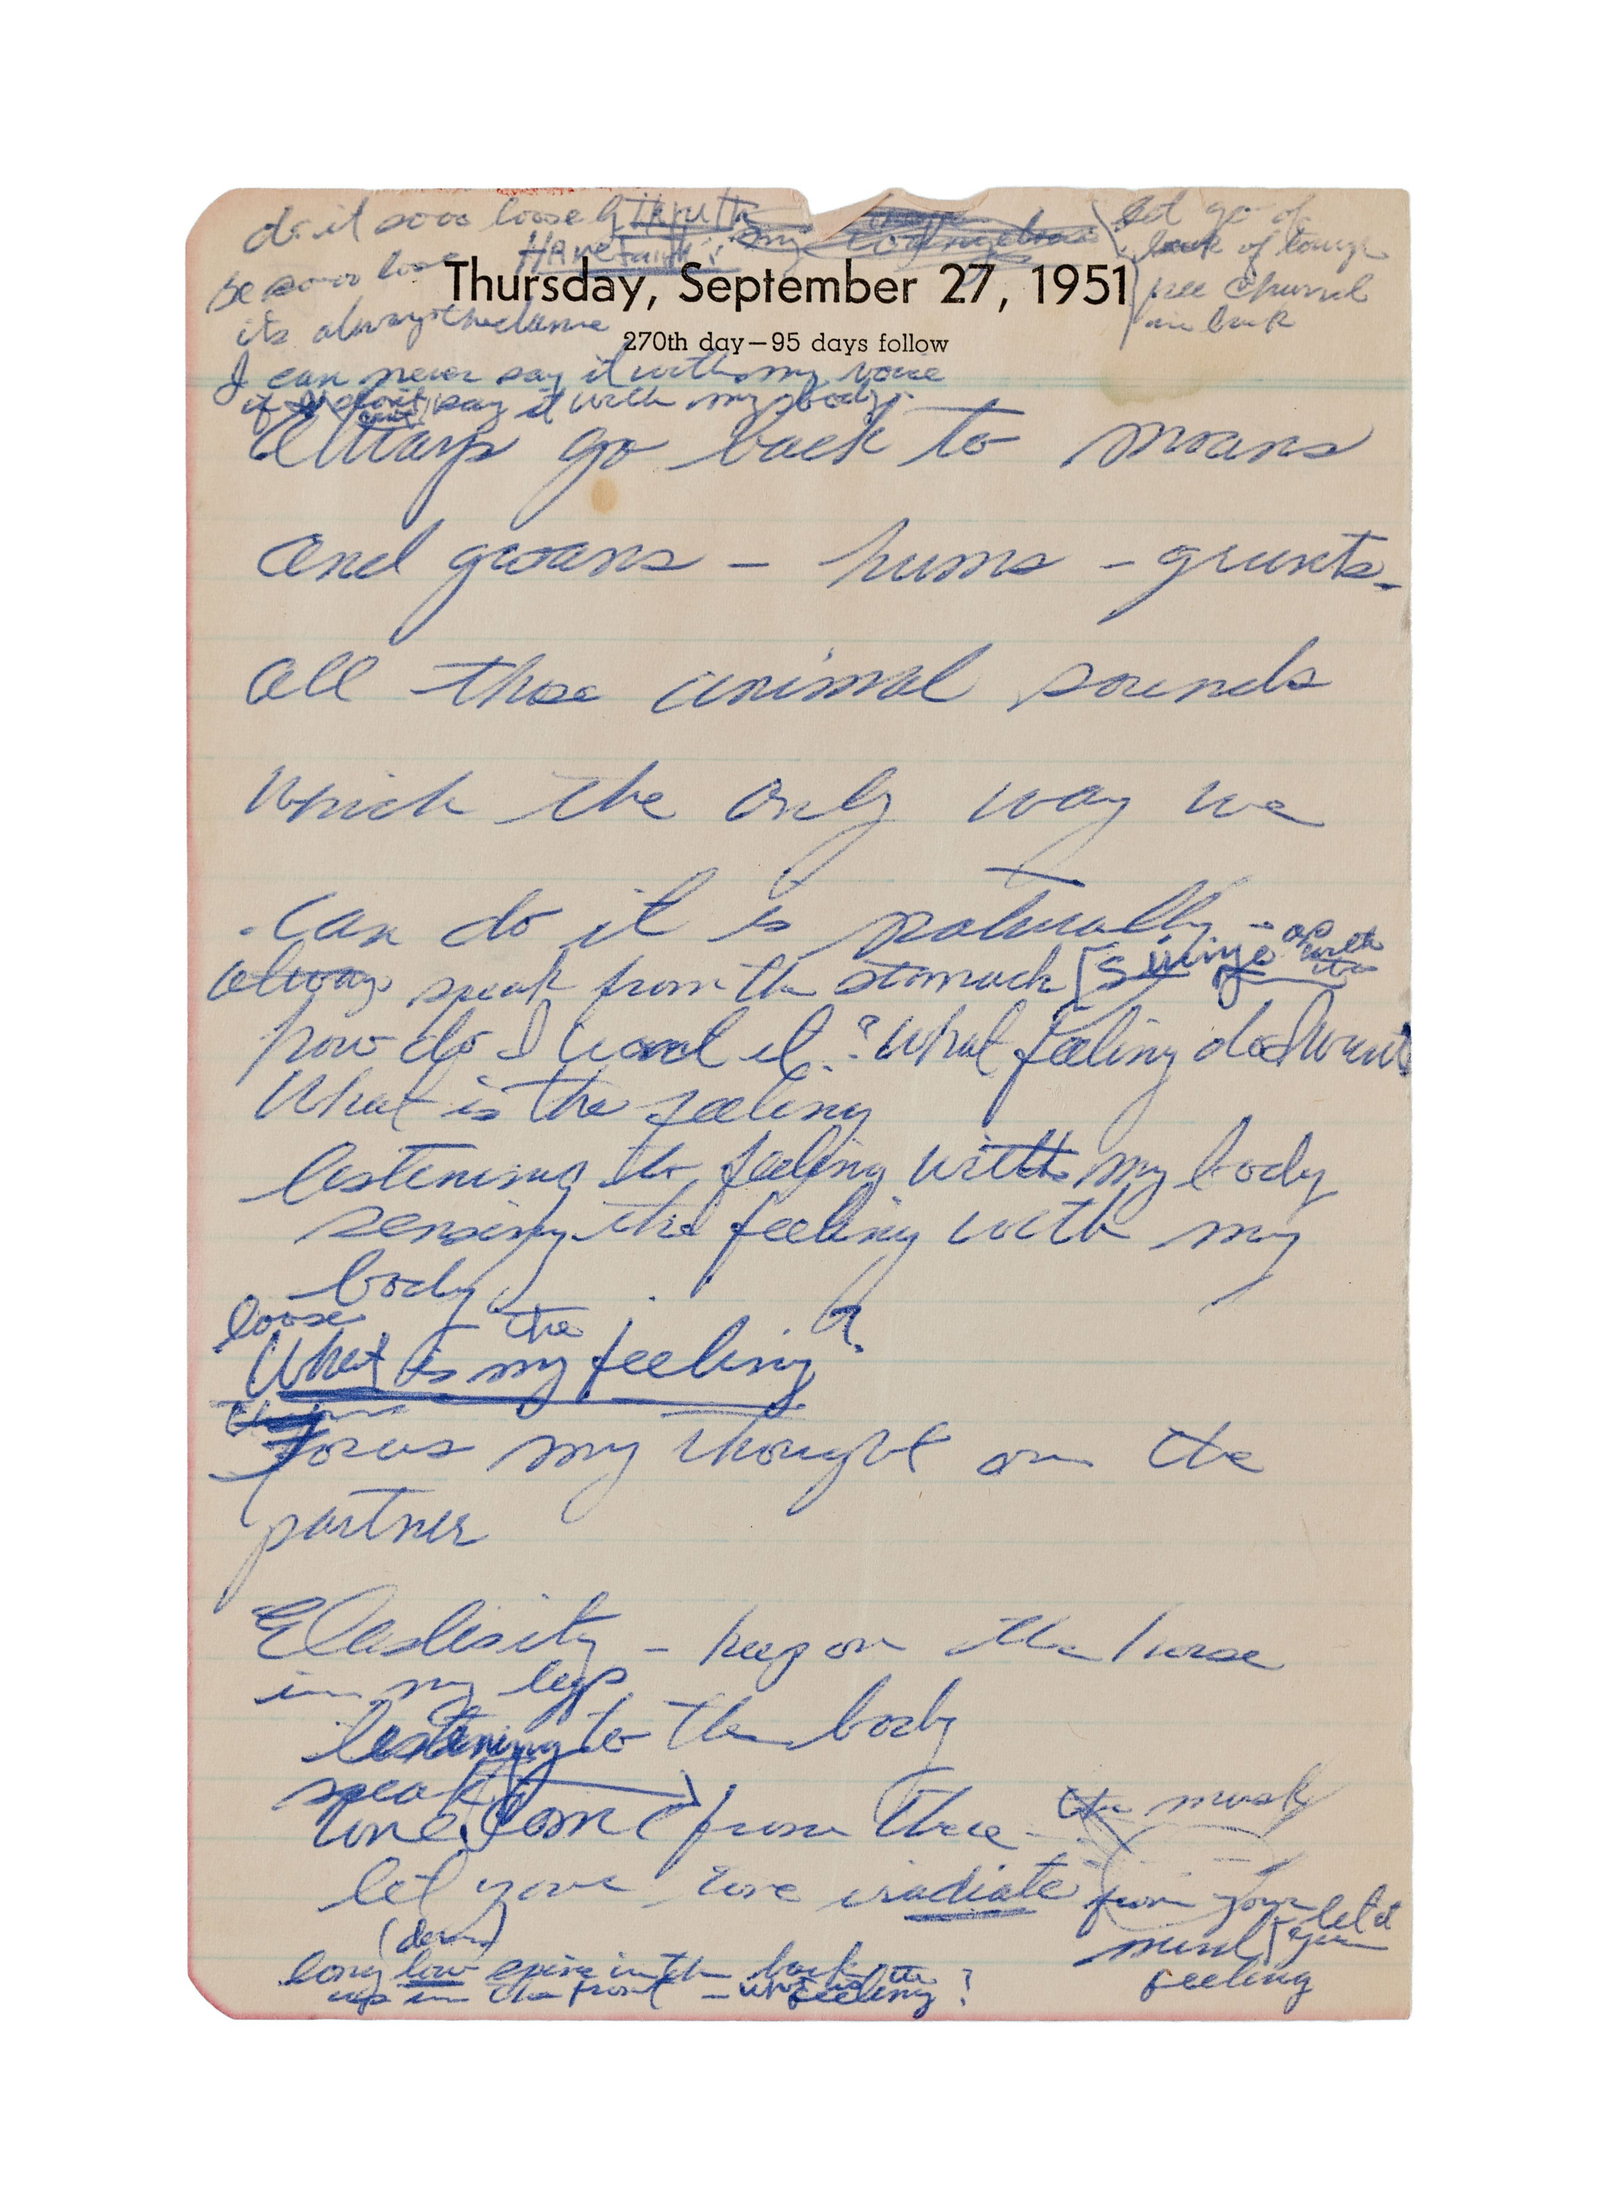 do it sooo loose
Have Faith
my
let go of
be sooo lose
back of tounge
Thursday, September 27, 1951
see
in back
its always the same
270th day—95 days follow
I can never say it with my voice
if I don't say it with my body.
cant
Always go back to moans
and groans – hums – grunts –
all those animal sounds
which the only way we
can do it is naturally –
always speak from the stomach
how do I want it? What feeling do I want
What is the feeling
listening to feeling with my body
sensing the feeling with my
body
loose the
What is my feeling?
Focus my thought on the
partner
Elastisity – keep on the horse
in my legs
listening to the body
speak
tone come from there – the mask
let your tone iradiate from your
mind
let it
feeling
(down)
long low spine in the back
up in the front – what is the feeling?